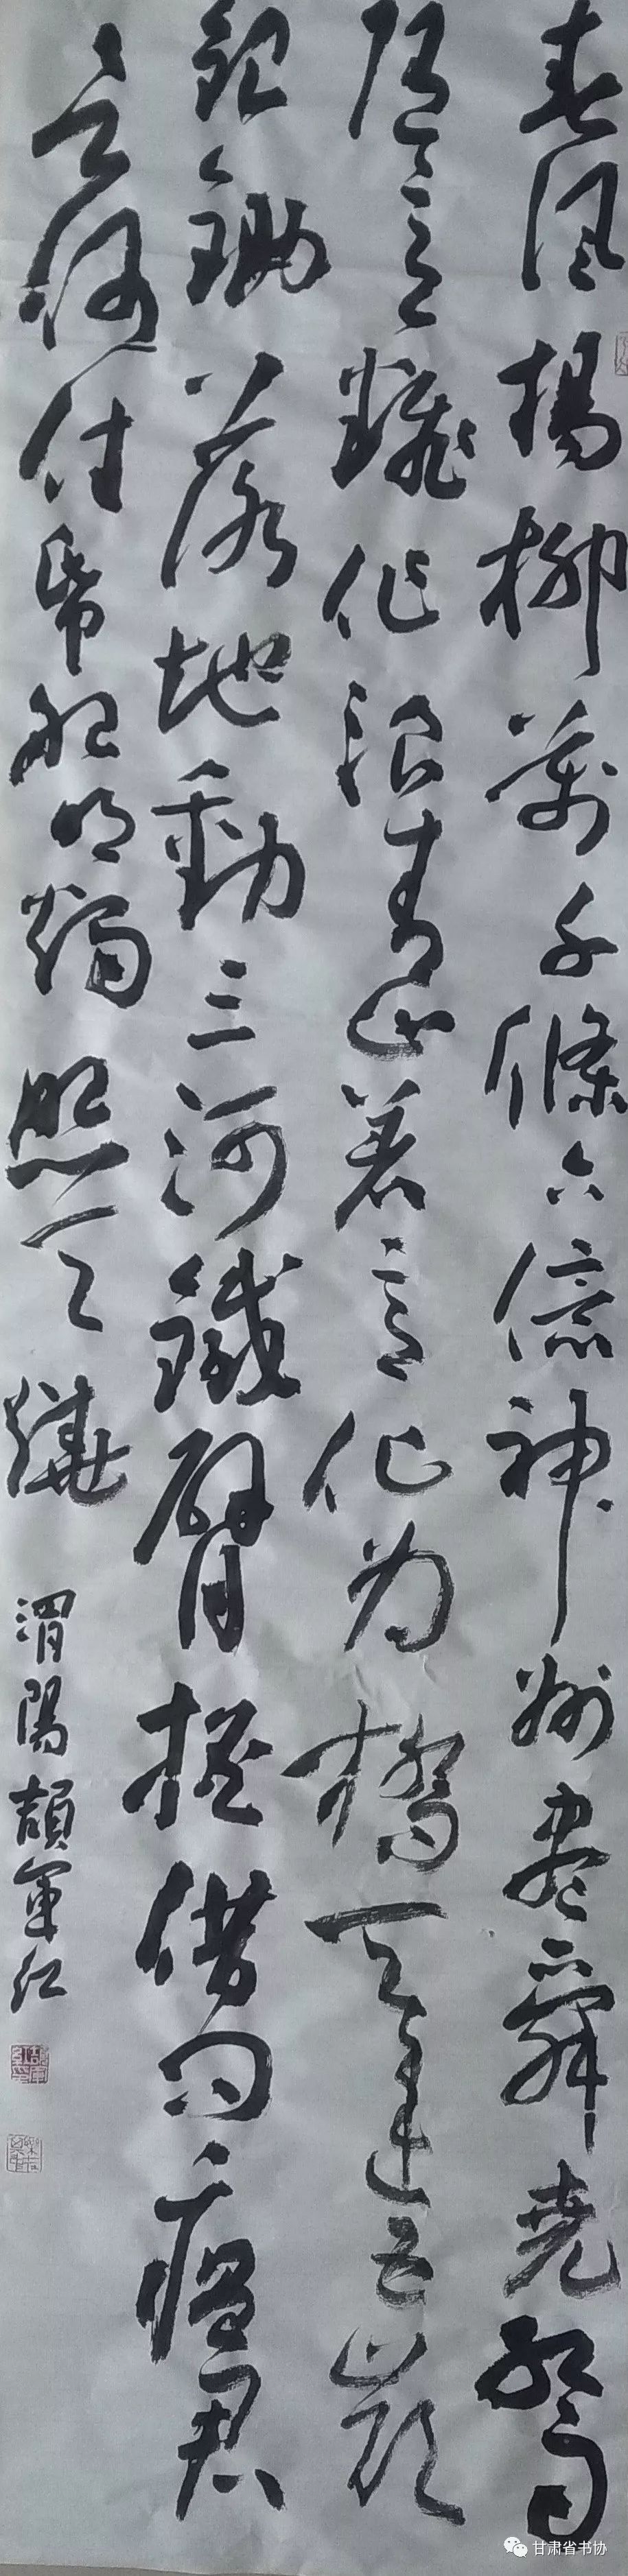 春風楊柳萬千條六億神州盡舜堯紅雨
隨意翻作浪青山着意化为橋天連五嶺
銀鋤落地動三河鐵臂摇借问瘟君
何往帋船明燭照天燒
渭陽頡軍江
甘肃省书协